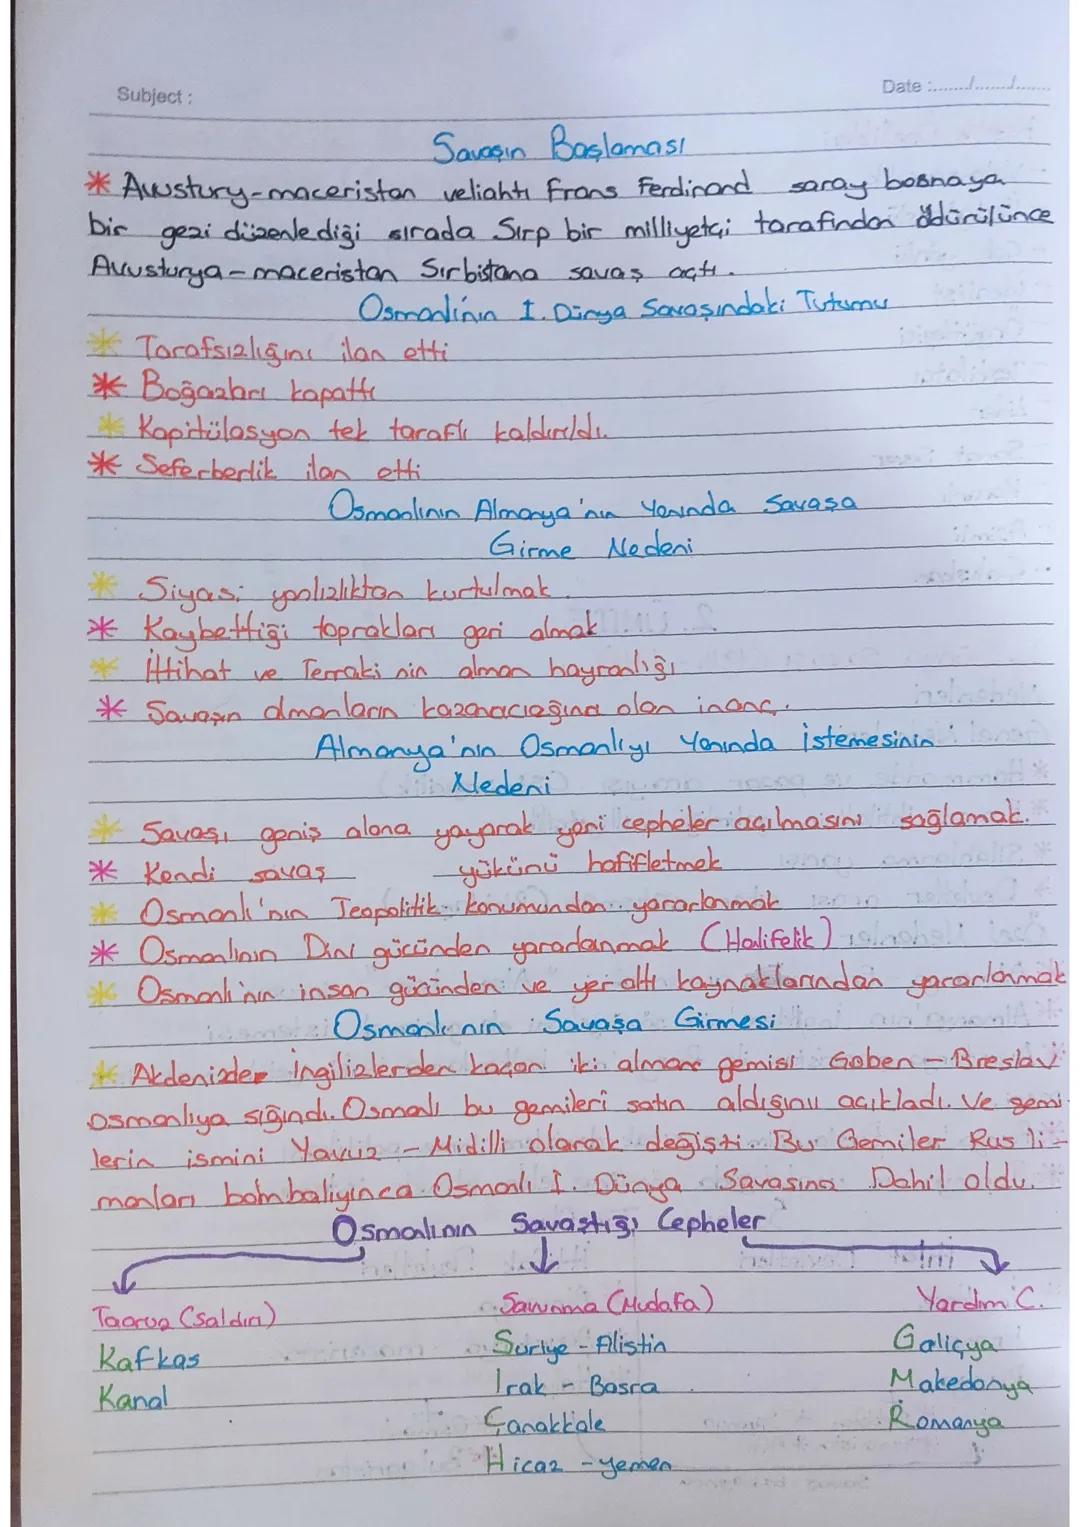 Subject :
Date :......./......./.......
Savaşın Başlaması
* Avustury-maceristan veliahtı Frans Ferdinand saray bosnaya
bir gezi düzenlediği sırada Sırp bir milliyetçi tarafından öldürülünce
Avusturya-maceristan Sırbistana savaş açtı.
Osmanlı'nın I. Dünya Savaşındaki Tutumu
* Tarafsızlığını ilan etti
* Boğazları kapattı
* Kapitülasyon tek taraflı kaldırıldı.
* Seferberlik ilan etti
Osmanlının Almanya'nın Yanında Savaşa
Girme Nedeni
* Siyasi yanlızlıktan kurtulmak.
* Kaybettiği toprakları geri almak
* İttihat ve Terraki nin alman hayranlığı
* Savaşın almanların kazanacağına olan inanç.
Almanya'nın Osmanlıyı Yanında istemesinin
Nedeni
* Savaşı geniş alana yayarak yeni cepheler açılmasını sağlamak.
* Kendi savaş yükünü hafifletmek
* Osmanlı'nın Jeopolitik konumundan yararlanmak
* Osmanlının Dini gücünden yaradanmak (Halifelik)
* Osmanlı'nın insan gücünden ve yer altı kaynaklarından yararlanmak
Osmanlı nın Savaşa Girmesi
* Akdenizde İngilizlerden kaçan iki alman gemisi Goben - Breslav
osmanlıya sığındı. Osmanlı bu gemileri satın aldığını açıkladı. Ve gemi
lerin ismini Yavuz - Midilli olarak değişti. Bu Gemiler Rus li-
manları bombaliyınca Osmanlı I. Dünya Savaşına Dahil oldu.
Osmanlının Savaştığı Cepheler
Taaruz (Saldırı) Savunma (Mudafa) Yardım C.
Kafkas Suriye - Filistin Galiçya
Kanal Irak - Basra Makedonya
Çanakkale Romanya
Hicaz - yemen